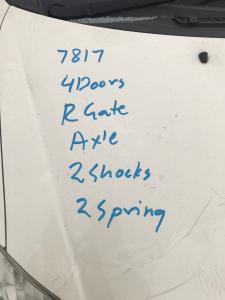 7817
4Doors
R Gate
Axle
2Shocks
2Spring